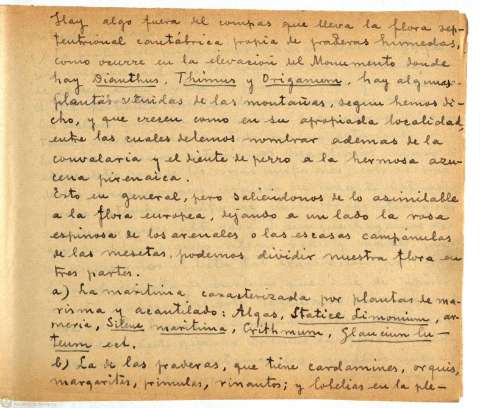 Hay algo fuera del compas que lleva la flora sep-
tentrional cantábrica propia de praderas humedas,
como ocurre en la elevación del Monumento donde
hay Dianthus, Thimus y Origanum, hay algunas
plantas venidas de las montañas, segun hemos di-
cho, y que crecen como en su apropiada localidad,
entre las cuales debemos nombrar ademas de la
convalaria y el diente de perro a la hermosa azu-
cena pirenaica.
Esto en general, pero saliéndonos de lo asimilable
a la flora europea, dejando a un lado la rosa
espinosa de los arenales o las escasas campánulas
de las mesetas, podemos dividir nuestra flora en
tres partes.
a) La marítima caracterizada por plantas de ma-
risma y acantilado: Algas, Statice Limonium, ar-
meria, Silene maritima, Crithmum, Glaucium lu-
teum ect.
b) La de las praderas, que tiene cardamines, orquis,
margarites, primulas, rinantos; y lobelias en la ple-